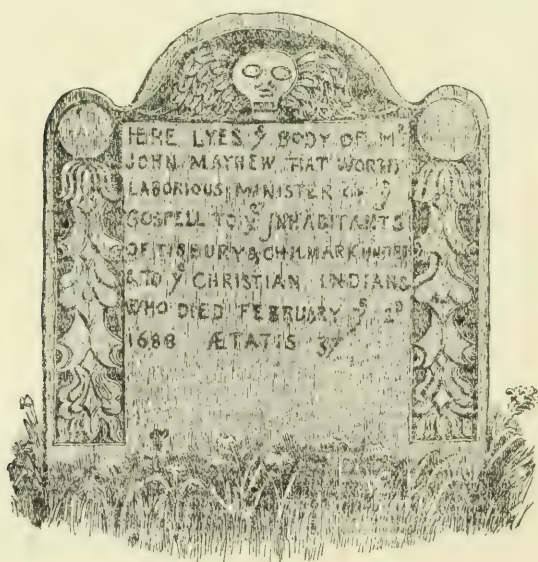 HERE LYES yᵉ BODY OF Mʳ
JOHN MAYHEW THAT WORTHY
LABORIOUS MINISTER OF yᵉ
GOSPELL TO yᵉ INHABITANTS
OF TISBURY & CHILMARK
& TO yᵉ CHRISTIAN INDIANS
WHO DIED FEBRUARY yᵉ 2ᴰ
1688 ÆTATIS 37